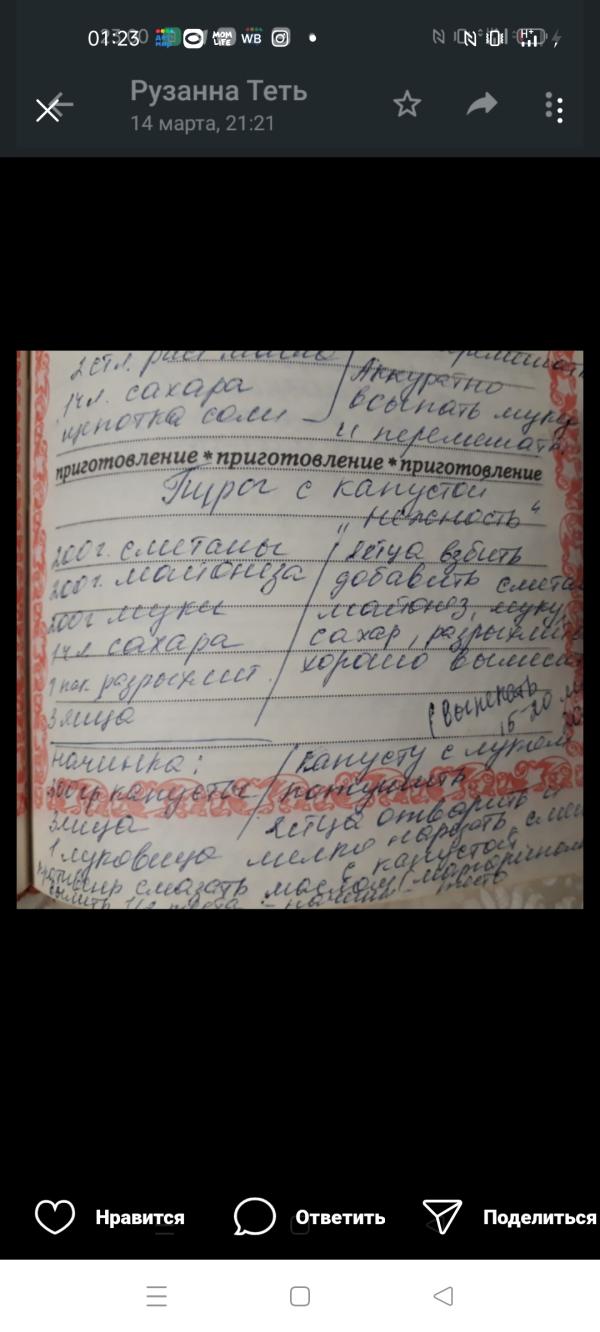 01:23
WB
Рузанна Теть
14 марта, 21:21
2 ст.л.
1 ч.л. сахара
щепотка соли
Аккуратно
всыпать муку
и перемешать
приготовление * приготовление * приготовление
Пирог с капустой
"Нежность"
200 г. сметаны
200 г. майонеза
200 г муки
1 ч.л сахара
1 пак. разрыхлит.
3 яйца
Яйца взбить
добавить смета
майонез, муку,
сахар, разрыхлит
хорошо вымеша
(выпекать
15-20 м
начинка:
капусты
3 яйца
1 луковица
капусту с луком
потушить
Яйца отварить и
мелко нарезать, сме
с капустой
смазать маслом (маргарином
Нравится
Ответить
Поделиться